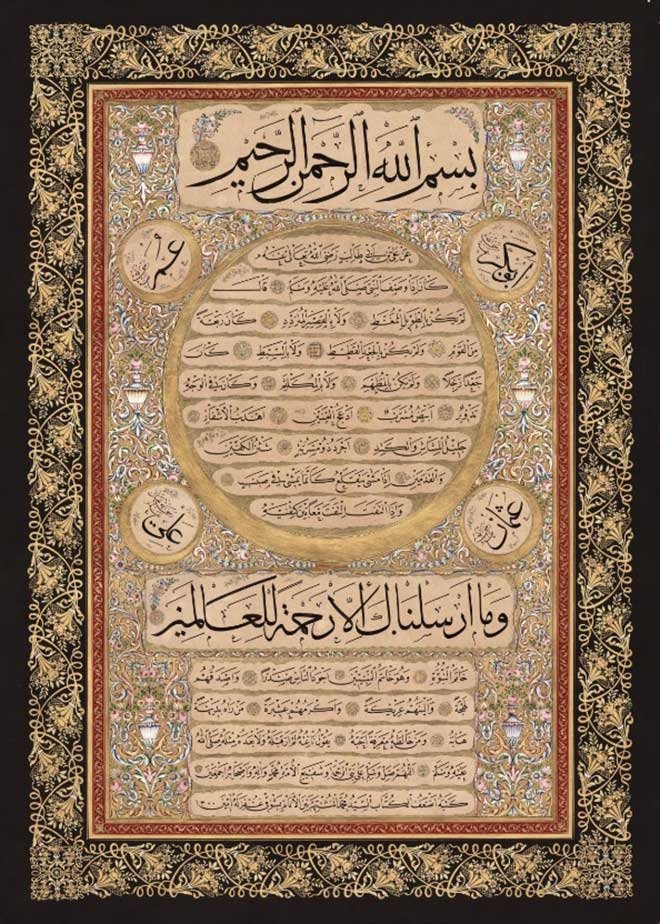 بسم الله الرحمن الرحيم
ابو بكر
عمر
عن علي بن ابي طالب رضي الله تعالى عنه
كان اذا وصف النبي صلى الله عليه وسلم قال
لم يكن بالطويل الممغط ولا بالقصير المتردد كان ربعة
من القوم ولم يكن بالجعد القطط ولا بالسبط كان
جعدا رجلا ولم يكن بالمطهم ولا بالمكلثم وكان في الوجه
تدوير ابيض مشرب ادعج العينين اهدب الاشفار
جليل المشاش والكتد اجرد ذو مسربة شثن الكفين
والقدمين اذا مشى يتقلع كانما يمشي في صبب
واذا التفت التفت معا بين كتفيه
عثمان
علي
وما ارسلناك الا رحمة للعالمين
خاتم النبوة وهو خاتم النبيين اجود الناس صدرا واصدقهم
لهجة والينهم عريكة واكرمهم عشيرة من رآه بديهة
هابه ومن خالطه معرفة احبه يقول ناعته لم ار قبله ولا بعده مثله صلى الله
عليه وسلم اللهم صل وسلم على نبي الرحمة وشفيع الامة محمد وآله واصحابه اجمعين
كتبه اضعف الكتاب السيد محمد